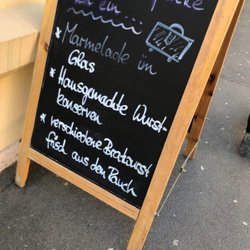 in ein ...
* Marmelade im
Glas
* Hausgemachte Wurst-
konserven
* verschiedene Bratwurst
frisch aus dem Rauch